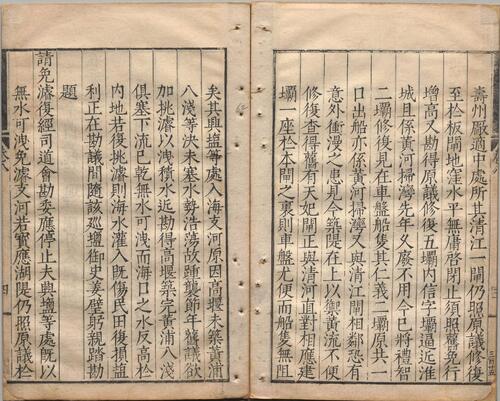 壽州廠適中處所其清江一閘照原議修復
至於板閘地窪水平無庸啓閉止須照舊免行
增高又勘得原議修復五壩內信字壩逼近淮
城且係黃河掃灣先年久廢不用今已將禮智
二壩修復見在車盤船隻其仁義二壩原共一
口出船亦係黃河掃灣又與清江閘相鄰恐有
意外衝漫之患見今築隄在上以禦黃流不便
修復查得舊有天妃閘正與清河直對相應建
壩一座於本閘之裏則車盤尤便而船隻無阻
矣其興塩等處入海支河原因高堰未築黃浦
八淺等決未塞水勢浩蕩故踵襲節年舊議欲
加挑濬以洩積水近勘得高堰築完黃浦八淺
俱塞下流已乾無水可洩而海口之水反高於
內地若復挑濬則海水灌入既傷民田復損塩
利正在勘議間隨該巡塩御史姜璧躬親踏勘
題
請免濬復經司道會勘委應停止夫興塩等處既以
無水可洩免濬支河若寳應湖隄仍照原議於
卷八
四